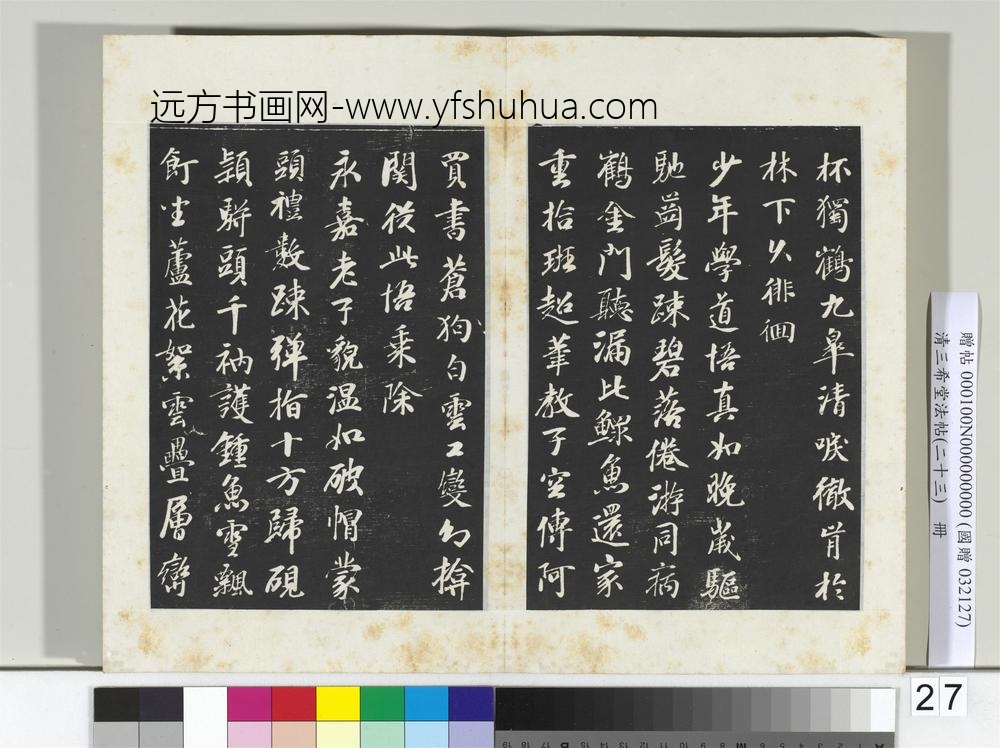 远方书画网-www.yfshuhua.com
杯獨鶴九皋清唳徹肯於
林下久徘徊
少年學道悟真如晚歲驅
馳齒髮踈碧落倦游同病
鶴金門聽漏比鰥魚還家
重拾班超筆教子空傳阿
買書蒼狗白雲工變幻
關從此悟乘除
永嘉老子貌温如破帽蒙
頭禮數踈彈指十方歸硯
頭千衲護鍾魚雪飄
飣坐蘆花絮雲疊層巒
贈帖 000100N000000000 (國贈 032127)
清三希堂法帖(二十三) 冊
27